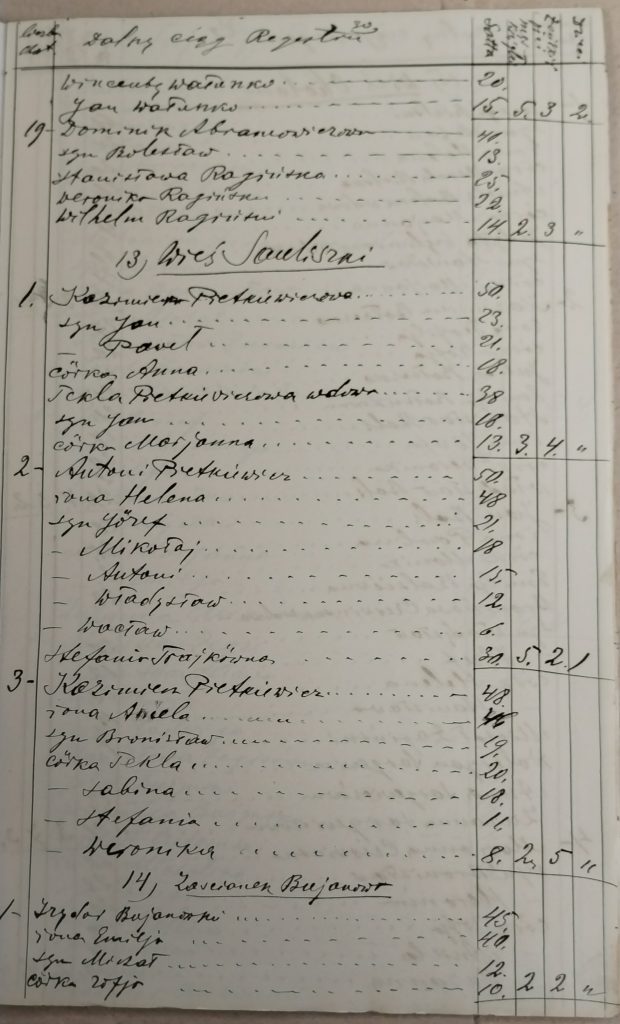 Dalszy ciąg Regestru 30
Wincenty Watunko 20.
Jan Watunko 15. 5. 3 2.
19- Dominik Abramowiczow 41.
syn Bolesław 13.
Stanisława Ragińska 25.
Weronika Ragińska 22.
Wilhelm Ragiński 14. 2. 3 „
13) Wieś Sauliszki
1. Kazimiera Pietkiewiczowa 50.
syn Jan 23.
— Paweł 21.
córka Anna 18.
Tekla Pietkiewiczowa wdowa 38
syn Jan 18.
córka Marjanna 13. 3. 4. „
2- Antoni Pietkiewicz 50.
żona Helena 48
syn Józef 21.
— Mikołaj 18
— Antoni 15.
— Władysław 12.
— Wacław 6.
Stefania 30. 5. 2. 1
3- Kazimierz Pietkiewicz 48.
żona Aniela
syn Bronisław 19.
córka Tekla 20.
— Sabina 18.
— Stefania 11.
— Weronika 8. 2, 5 „
14) Zaścianek Bujanow
1- Izydor Bujanowski 45
żona Emilja 40.
syn Michał 12.
córka Zofja 10. 2 2 „